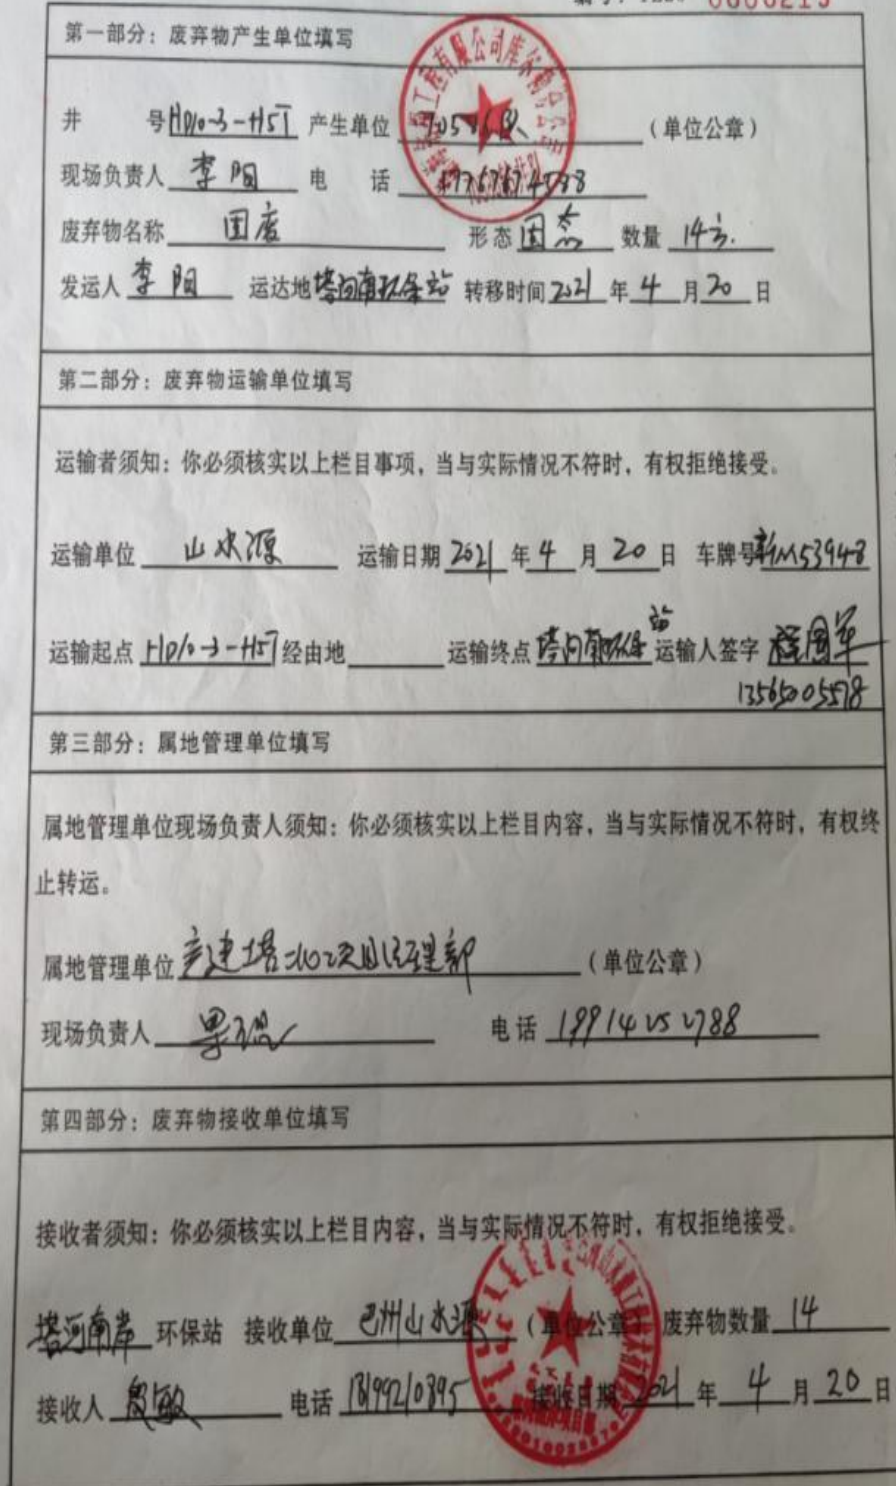 第一部分：废弃物产生单位填写
井 号 HD10-3-H5T 产生单位 70506队 （单位公章）
现场负责人 李阳 电 话
废弃物名称 固废 形态 固态 数量 14方.
发运人 李阳 运达地 塔河南环保站 转移时间 2021 年 4 月 20 日
第二部分：废弃物运输单位填写
运输者须知：你必须核实以上栏目事项，当与实际情况不符时，有权拒绝接受。
运输单位 山水源 运输日期 2021 年 4 月 20 日 车牌号 新M53948
运输起点 HD10-3-H5T 经由地 运输终点 塔河南环保站 运输人签字 程国军
13565005578
第三部分：属地管理单位填写
属地管理单位现场负责人须知：你必须核实以上栏目内容，当与实际情况不符时，有权终
止转运。
属地管理单位 产建塔北项目经理部 （单位公章）
现场负责人 电话 19914252788
第四部分：废弃物接收单位填写
接收者须知：你必须核实以上栏目内容，当与实际情况不符时，有权拒绝接受。
塔河南岸 环保站 接收单位 巴州山水源 （单位公章） 废弃物数量 14
接收人 电话 18199210895 接收日期 2021 年 4 月 20 日